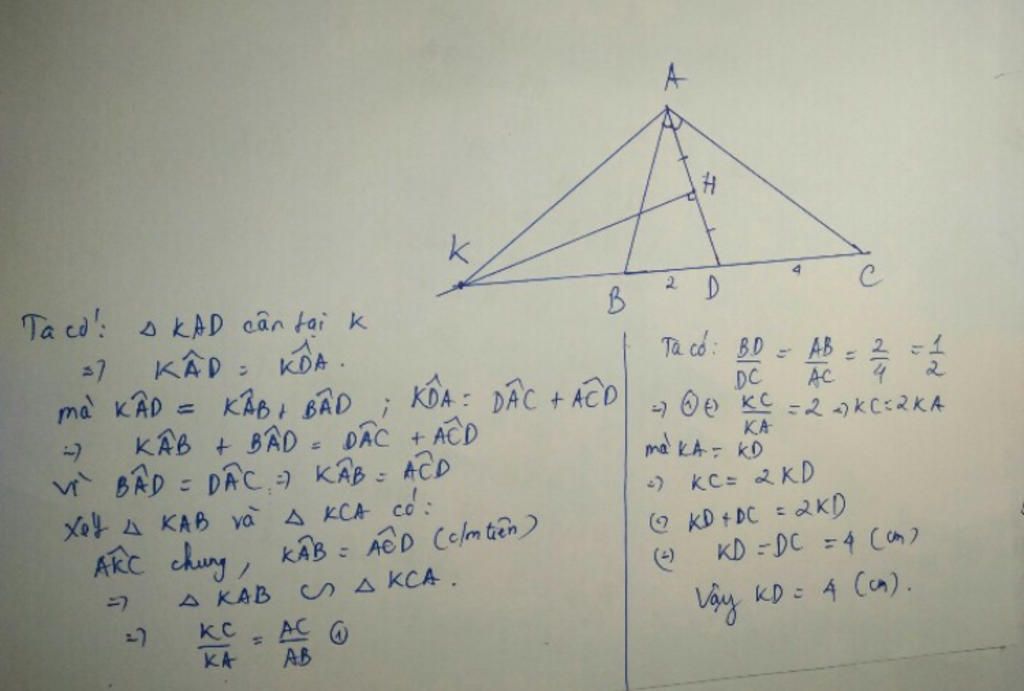 A
H
K
B
2
D
4
C
Ta có: △ KAD cân tại K
=> KÂD = KD̂A.
mà KÂD = KÂB + BÂD ; KD̂A = DÂC + AĈD
=> KÂB + BÂD = DÂC + AĈD
vì BÂD = DÂC => KÂB = AĈD
Xét △ KAB và △ KCA có:
AK̂C chung, KÂB = AĈD (c/m trên)
=> △ KAB ∽ △ KCA.
=> KC/KA = AC/AB ①
Ta có: BD/DC = AB/AC = 2/4 = 1/2
=> ① (=) KC/KA = 2 => KC = 2KA
mà KA = KD
=> KC = 2KD
(=) KD + DC = 2KD
(=) KD = DC = 4 (cm)
Vậy KD = 4 (cm).